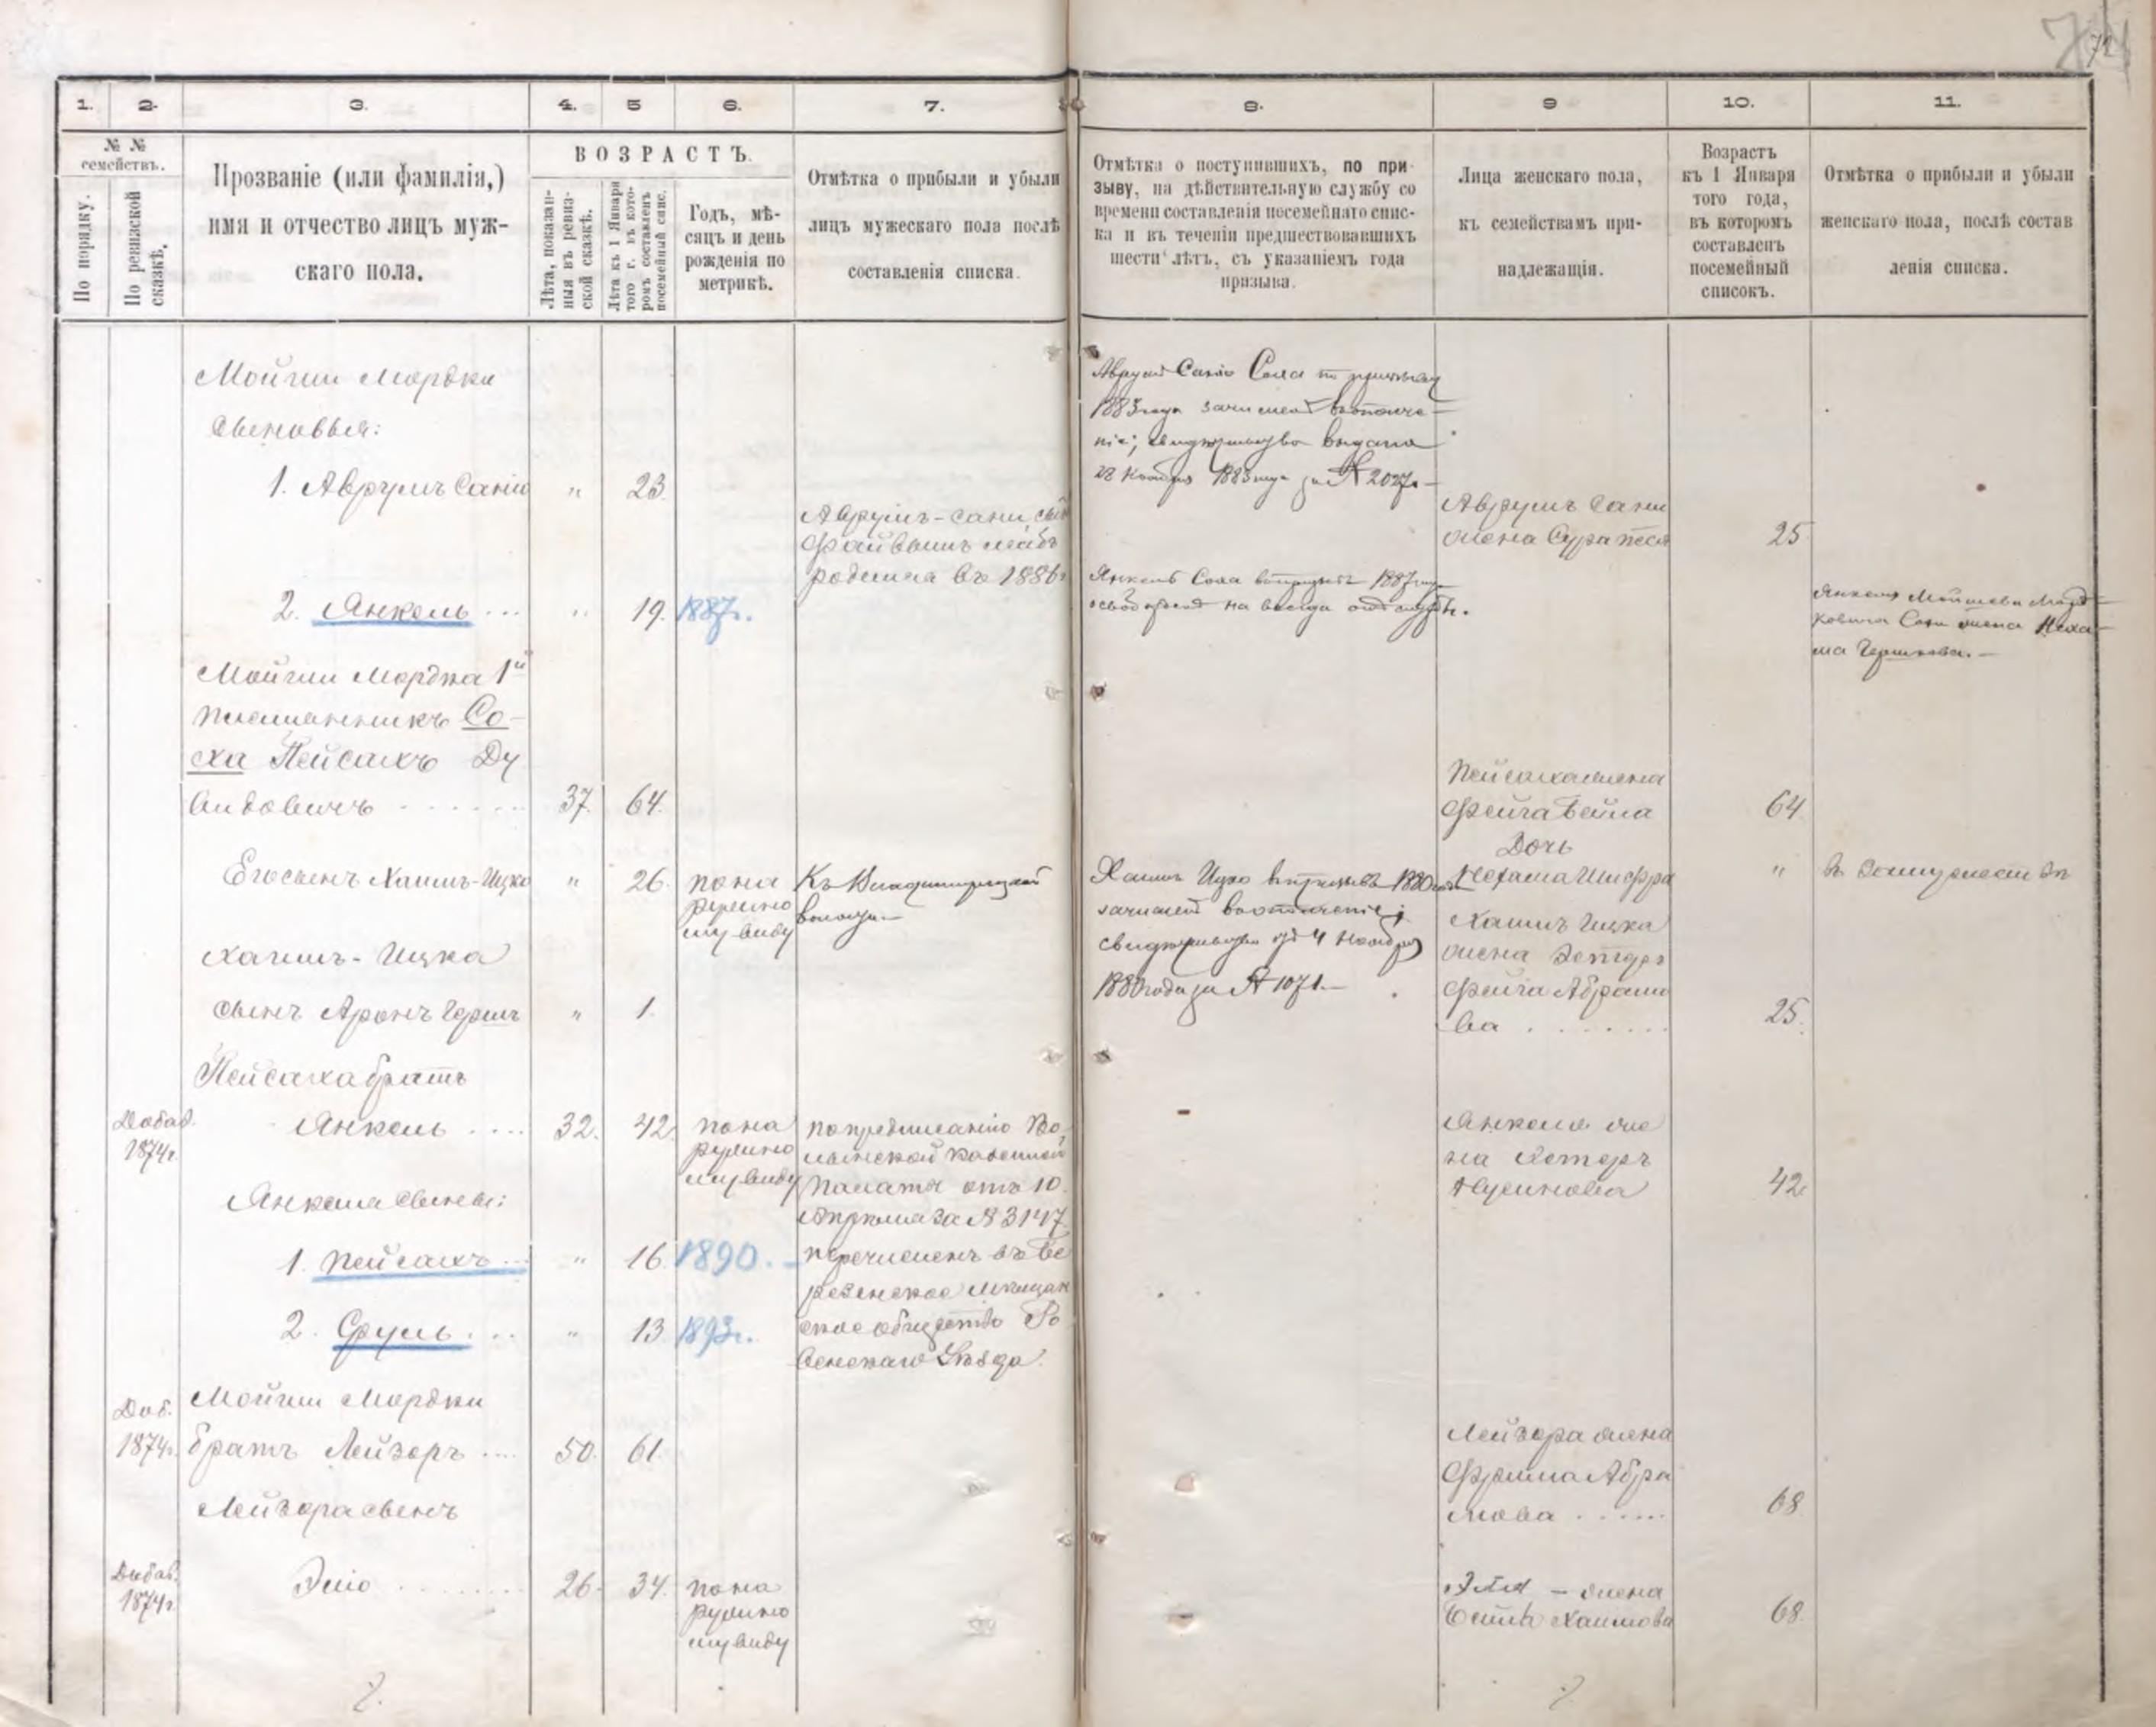 74
1. 2. 3. 4. 5 6. 7.
№ № семействъ.
По порядку.
По ревизской сказкѣ.
Прозваніе (или фамилія,)
имя и отчество лицъ муж-
скаго пола.
ВОЗРАСТЪ.
Лѣта, показан-
ныя въ ревиз-
ской сказкѣ.
Лѣта къ 1 Января
того г. въ кото-
ромъ составленъ
посемейный спис.
Годъ, мѣ-
сяцъ и день
рожденія по
метрикѣ.
Отмѣтка о прибыли и убыли
лицъ мужескаго пола послѣ
составленія списка.
Мойши Мордки
сыновья:
1. Аврумъ Санію " 23
Аврумъ-Сани сынъ
Файвышъ Лейбъ
родился въ 1886г
2. Янкель ... " 19. 1887г.
Мойши Мордка 1й
племянникъ Со-
ха Пейсахъ Ду
видовичъ . . . . . . 37. 64.
Его сынъ Хаимъ-Ицко " 26. по на
ружно
му виду
Къ Владимирецкой
волости
Хаимъ-Ицка
сынъ Аронъ Гершъ " 1.
Пейсаха братъ
Добав. 1874г. Янкель .... 32. 42. по на
ружно
му виду
по предписанію Во
лынской Казенной
Палаты отъ 10
Апрѣля за № 3147
перечисленъ въ Бе
резенское мѣщан
ское общество Ро
венскаго Уѣзда.
Янкеля сыны:
1. Пейсахъ ... " 16 1890.
2. Сруль ... " 13 1893г.
Доб. 1874г. Мойши Мордки
братъ Лейзоръ .... 50. 61.
Лейзора сынъ
Добав. 1874г. Элію ......... 26. 34. по на
ружно
му виду
8. 9 10. 11.
Отмѣтка о поступившихъ, по при-
зыву, на дѣйствительную службу со
времени составленія посемейнаго спис-
ка и въ теченіи предшествовавшихъ
шести лѣтъ, съ указаніемъ года
призыва.
Лица женскаго пола,
къ семействамъ при-
надлежащія.
Возрастъ
къ 1 Января
того года,
въ которомъ
составленъ
посемейный
списокъ.
Отмѣтка о прибыли и убыли
женскаго пола, послѣ состав
ленія списка.
Аврумъ Санію Соха по призыву
1883 года зачисленъ въ ополче-
ніе; свидѣтельство выдано
23 Ноября 1883 года за № 2027.
Аврумъ Сани
жена Сура Песя 25
Янкель Соха въ призывъ 1887 году
освобожденъ на всегда отъ службы.
Янкеля Мойшева Морд-
ковича Сохи жена Неха-
ма Гершкова.
Пейсаха жена
Фейга Бейла 64
Дочь
Нехама Шифра " въ замужествѣ
Хаимъ Ицко въ призывъ 1880 года
зачисленъ въ ополченіе;
свидѣтельство отъ 4 Ноября
1880 года за № 1071.
Хаимъ Ицка
жена Эстеръ
Фейга Абрамо
ва . . . . . . . . 25.
Янкеля же
на Эстеръ
Нусинова 42
Лейзора жена
Фрима Абра
мова . . . . . . 68
Эліи - жена
Бейла Хаимова 68